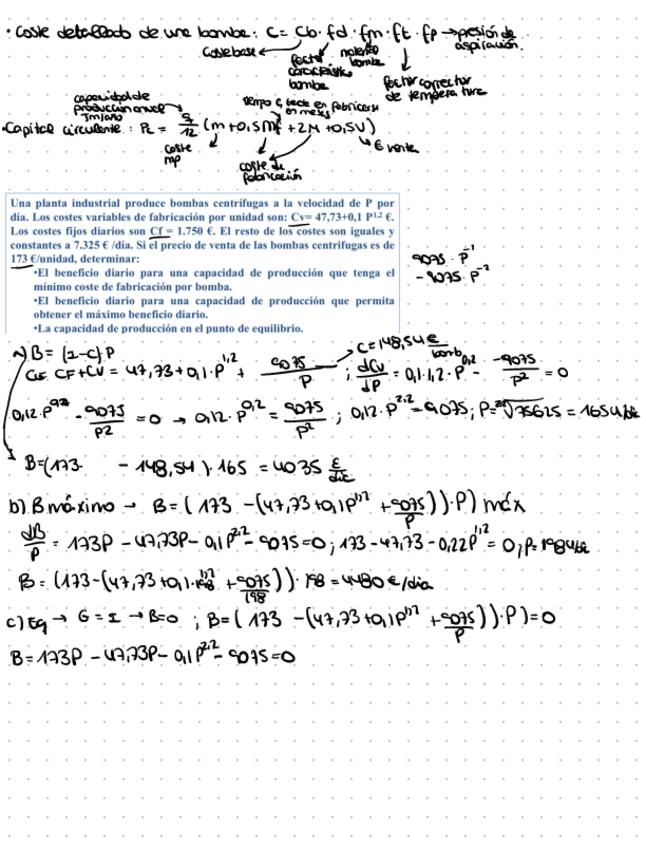 • Coste detallado de una bomba: C = Cb · fd · fm · ft · fp → presión de aspiración.
Coste base
factor característico bomba
material bomba
factor corrector de temperatura
capacidad de producción anual Tm/año
tiempo q tarda en fabricarse en meses
• Capital circulante: Pc = q/12 (m + 0,5Mf + 2M + 0,5V)
coste mp
coste de fabricación
€ venta
Una planta industrial produce bombas centrífugas a la velocidad de P por
día. Los costes variables de fabricación por unidad son: Cv= 47,73+0,1 P^1,2 €.
Los costes fijos diarios son Cf = 1.750 €. El resto de los costes son iguales y
constantes a 7.325 € /día. Si el precio de venta de las bombas centrifugas es de
173 €/unidad, determinar:
•El beneficio diario para una capacidad de producción que tenga el
mínimo coste de fabricación por bomba.
•El beneficio diario para una capacidad de producción que permita
obtener el máximo beneficio diario.
•La capacidad de producción en el punto de equilibrio.
9075 · P^-1
- 9075 · P^-2
a) B = (I-C) · P
C = 148,54 €/bomb
CF+CV = 47,73 + 0,1 · P^1,2 + 9075/P ; dCu/dP = 0,1 · 1,2 · P^0,2 - -9075/P^2 = 0
0,12 · P^0,2 - 9075/P2 = 0 → 0,12 · P^0,2 = 9075/P^2 ; 0,12 · P^2,2 = 9075 ; P = 2,2√75625 = 165 u/dia
B = (173 - 148,54) · 165 = 4035 €/dia
b) B máximo → B = ( 173 - (47,73 + 0,1P^1,2 + 9075/P)) · P) máx
dB/P = 173P - 47,73P - 0,1P^2,2 - 9075 = 0 ; 173 - 47,73 - 0,22P^1,2 = 0 ; P = 198 u/dia
B = (173 - (47,73 + 0,1 · 198^1,2 + 9075/198)) · 198 = 4480 €/dia
c) Eq → G = I → B=0 ; B = ( 173 - (47,73 + 0,1P^1,2 + 9075/P)) · P) = 0
B = 173P - 47,73P - 0,1P^2,2 - 9075 = 0